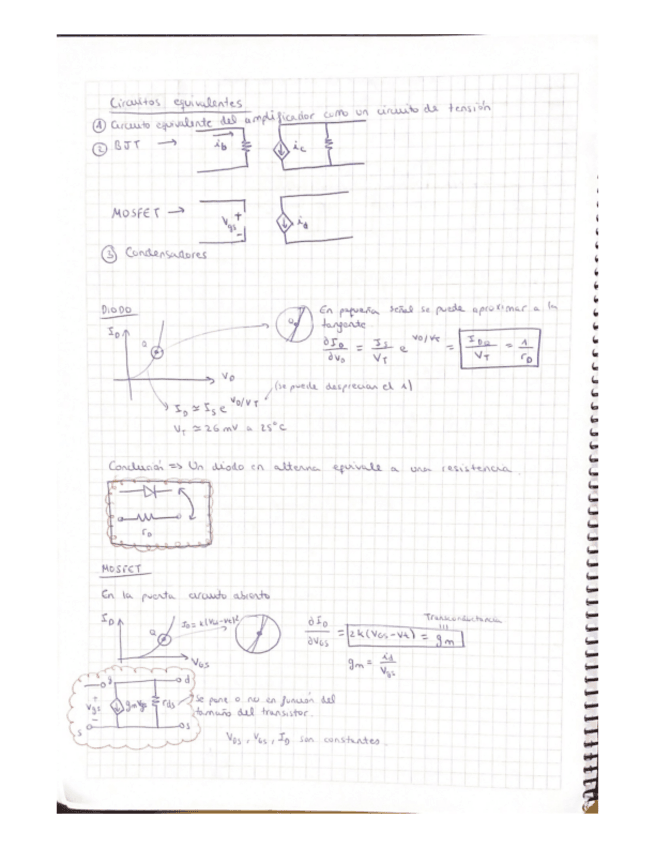 Circuitos equivalentes
① Circuito equivalente del amplificador como un circuito de tensión
② BJT → ib ic
MOSFET → Vgs + - id
③ Condensadores
DIODO
ID Q VD
En pequeña señal se puede aproximar a la
tangente
∂ID/∂VD = IS/VT e^VD/VT = IDQ/VT = 1/rD
(se puede despreciar el 1)
ID ≃ IS e^VD/VT
VT ≃ 26 mV a 25°C
Conclusión => Un diodo en alterna equivale a una resistencia.
rD
MOSFET
En la puerta circuito abierto
ID Q ID = k(VGS-Vt)² VGS
Transconductancia
∂ID/∂VGS = 2k(VGS-Vt) = gm
gm = id/Vgs
g d + Vgs - gmVgs rds s s
Se pone o no en función del
tamaño del transistor.
VDS, VGS, ID son constantes.